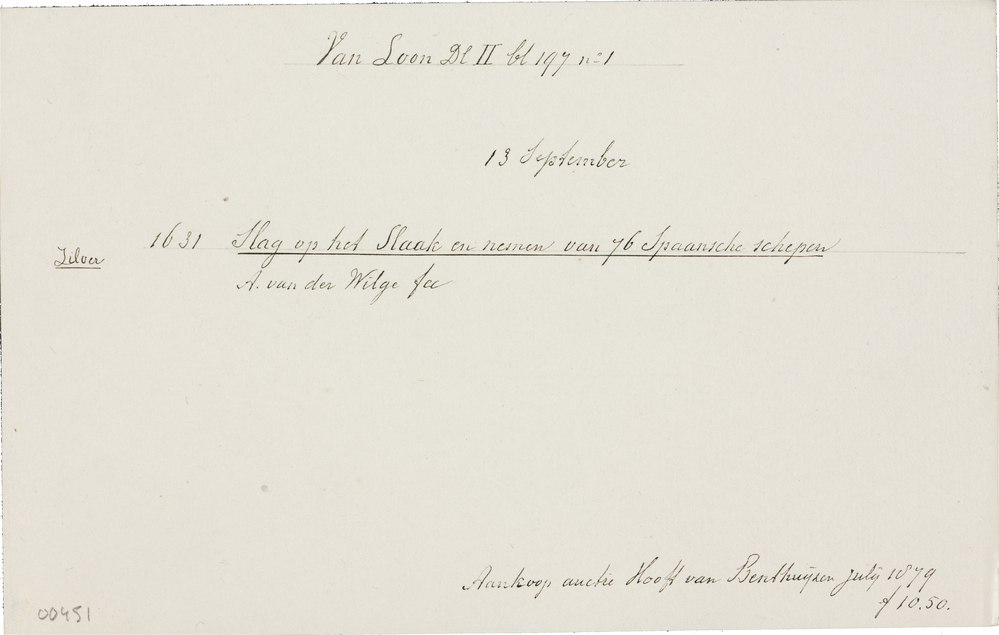 Van Loon Dl II bl 197 n=1
13 September
1631 Slag op het Slaak en nemen van 76 Spaansche schepen
Zilver
A. van der Wilge fec
Aankoop auctie Hooft van Benthuijzen july 1879
f 10.50.
00451